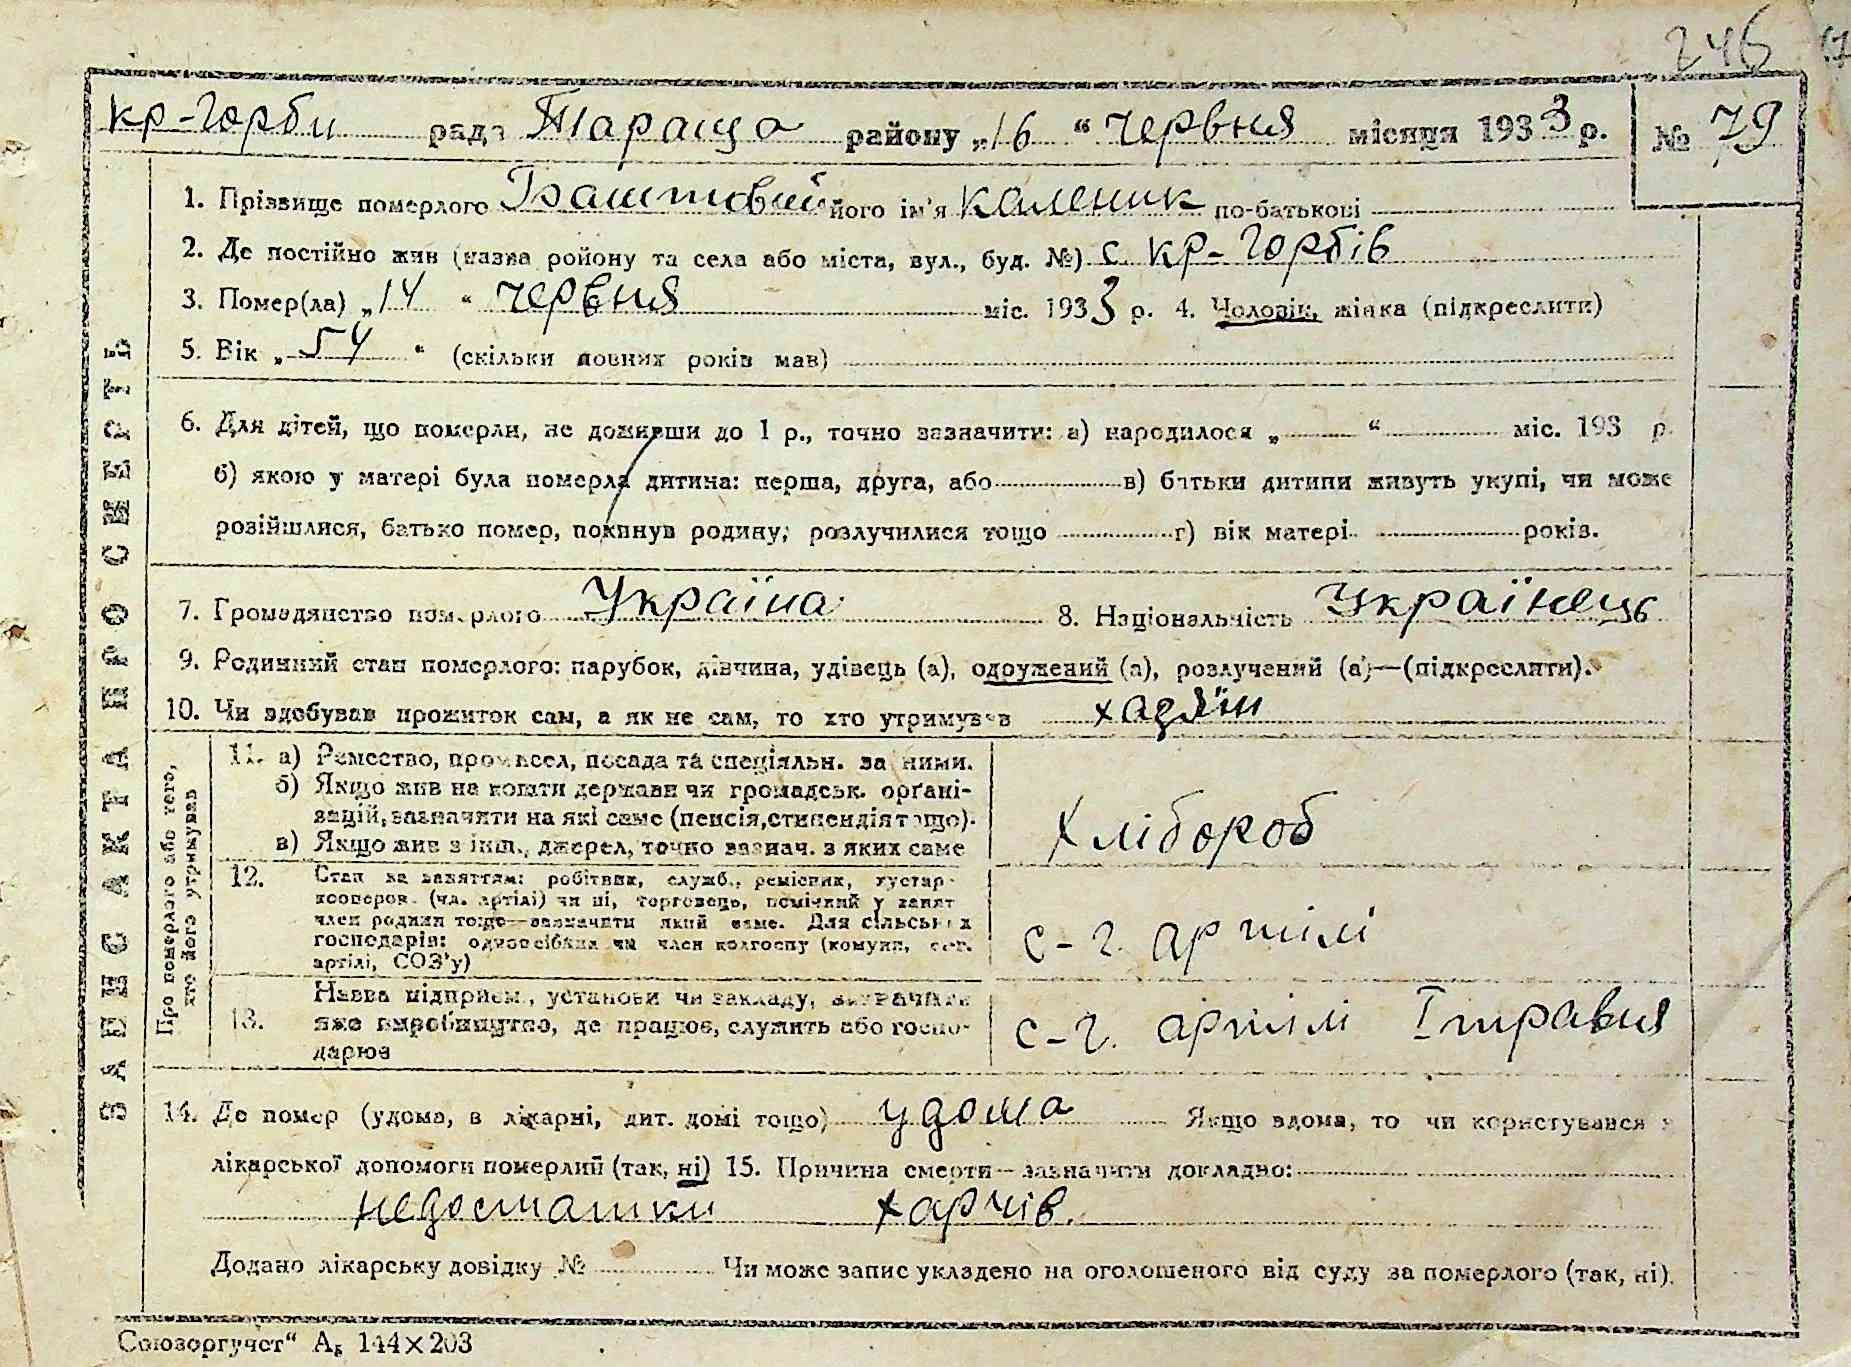 246
кр-Горби рада Тараща району „16 “ червня місяця 1933 р. № 79
1. Прізвище померлого Баштовий його ім'я Каленик по-батькові
2. Де постійно жив (назва району та села або міста, вул., буд. №) с. кр-Горбів
3. Помер(ла) „14 “ червня міс. 1933 р. 4. Чоловік, жінка (підкреслити)
5. Вік „ 54 “ (скільки повних років мав)
6. Для дітей, що померли, не доживши до 1 р., точно зазначити: а) народилося „ “ міс. 193 р.
б) якою у матері була померла дитина: перша, друга, або в) батьки дитини живуть укупі, чи може
розійшлися, батько помер, покинув родину; розлучилися тощо г) вік матері років.
7. Громадянство померлого Україна 8. Національність Українець
9. Родинний стан померлого: парубок, дівчина, удівець (а), одружений (а), розлучений (а)—(підкреслити).
10. Чи здобував прожиток сам, а як не сам, то хто утримував хазяїн
ЗАПИС АКТА ПРО СМЕРТЬ
Про померлого або того,
хто його утримував
11. а) Ремество, промисел, посада та спеціяльн. за ними.
б) Якщо жив на кошти держави чи громадськ. орґані-
зацій, зазначити на які саме (пенсія, стипендія тощо).
в) Якщо жив з інш., джерел, точно зазнач. з яких саме
Хлібороб
12. Стан за заняттям: робітник, служб., ремісник, кустар-
кооперов. (чл. артілі) чи ні, торговець, помічний у занят
член родини тощо—зазначити який саме. Для сільських
господарів: одноосібник чи член колгоспу (комуни, с.-г.
артілі, СОЗ'у)
с-г. артілі
13. Назва підприєм., установи чи закладу, визначити
яке виробництво, де працює, служить або госпо-
дарює
с-г. артілі Iтравня
14. Де помер (удома, в лікарні, дит. домі тощо) удома Якщо вдома, то чи користувався
лікарської допомоги померлий (так, ні) 15. Причина смерти—зазначити докладно:
недостатки харчів.
Додано лікарську довідку № Чи може запис укладено на оголошеного від суду за померлого (так, ні).
Союзоргучет“ А₅ 144×203